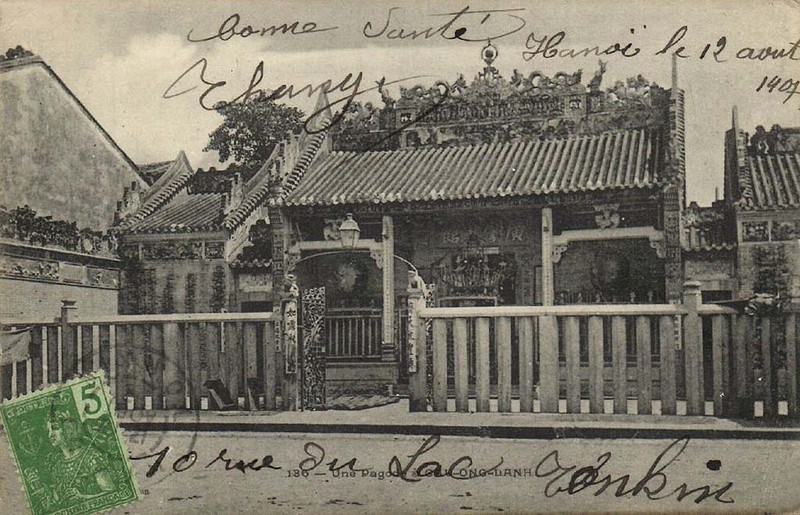 bonne santé
Hanoï le 12 aout
1907
Thany
如
5
10 rue du Lac Tonkin
136 — Une Pagode à CAU-ONG-LANH